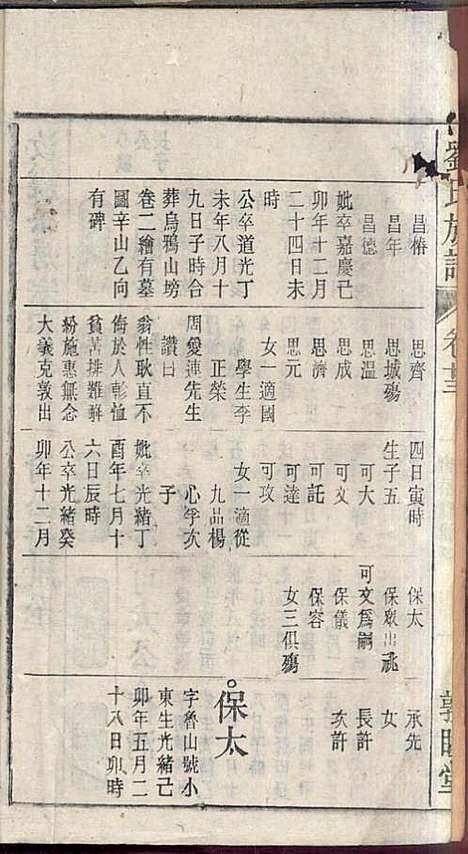 劉氏族譜
卷十三
敦睦堂
昌椿
昌年
昌德
妣卒嘉慶己
卯年十二月
二十四日未
時
公卒道光丁
未年八月十
九日子時合
葬烏鴉山塝
卷二繪有墓
圖辛山乙向
有碑
思齊
思城殤
思溫
思成
思濟
思元
女一適國
學生李
正榮
周燮連先生
讚曰
翁性耿直不
侮於人彰恤
貧苦排難解
紛施惠無念
大義克敦出
四日寅時
生子五
可大
可文
可託
可達
可攻
女一適從
九品楊
心孚次
子
妣卒光緒丁
酉年七月十
六日辰時
公卒光緒癸
卯年十二月
保太
保衆出祧
可文爲嗣
保儀
保容
女三俱殤
承先
女
長許
次許
保太
字魯山號小
東生光緒己
卯年五月二
十八日卯時